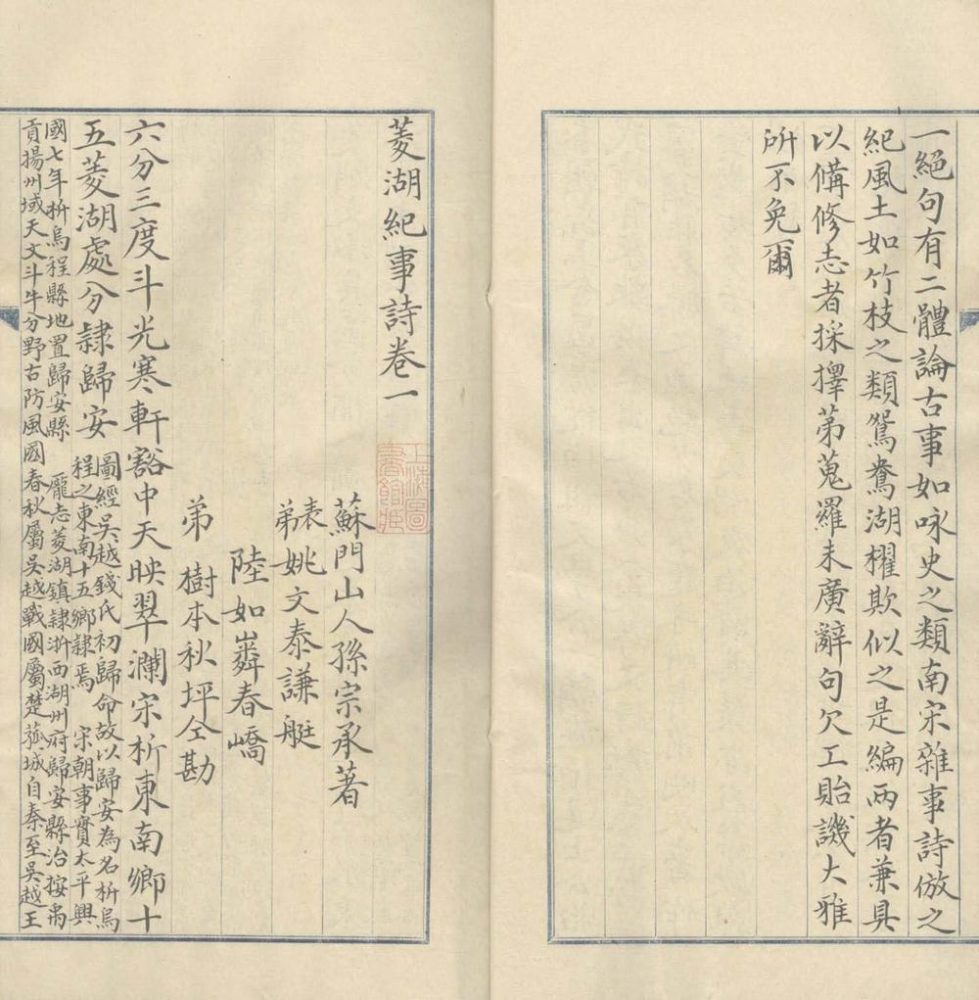 一絕句有二體論古事如咏史之類南宋雜事詩倣之
紀風土如竹枝之類鴛鴦湖櫂歌似之是編兩者兼具
以備修志者採擇第蒐羅未廣辭句欠工貽譏大雅
所不免爾
菱湖紀事詩卷一
蘇門山人孫宗承著
表弟姚文泰謙艇
陸如嶙春嶠
弟樹本秋坪仝勘
六分三度斗光寒軒豁中天映翠瀾宋析東南鄉十
五菱湖處分隷歸安
圖經吳越錢氏初歸命故以歸安為名析烏
程之東南十五鄉隷焉 宋朝事實太平興
國七年析烏程縣地置歸安縣 龎志菱湖鎮隷浙西湖州府歸安縣治按禹
貢揚州域天文斗牛分野古防風國春秋屬吳越戰國屬楚菰城自秦至吳越王
上海圖
書館藏